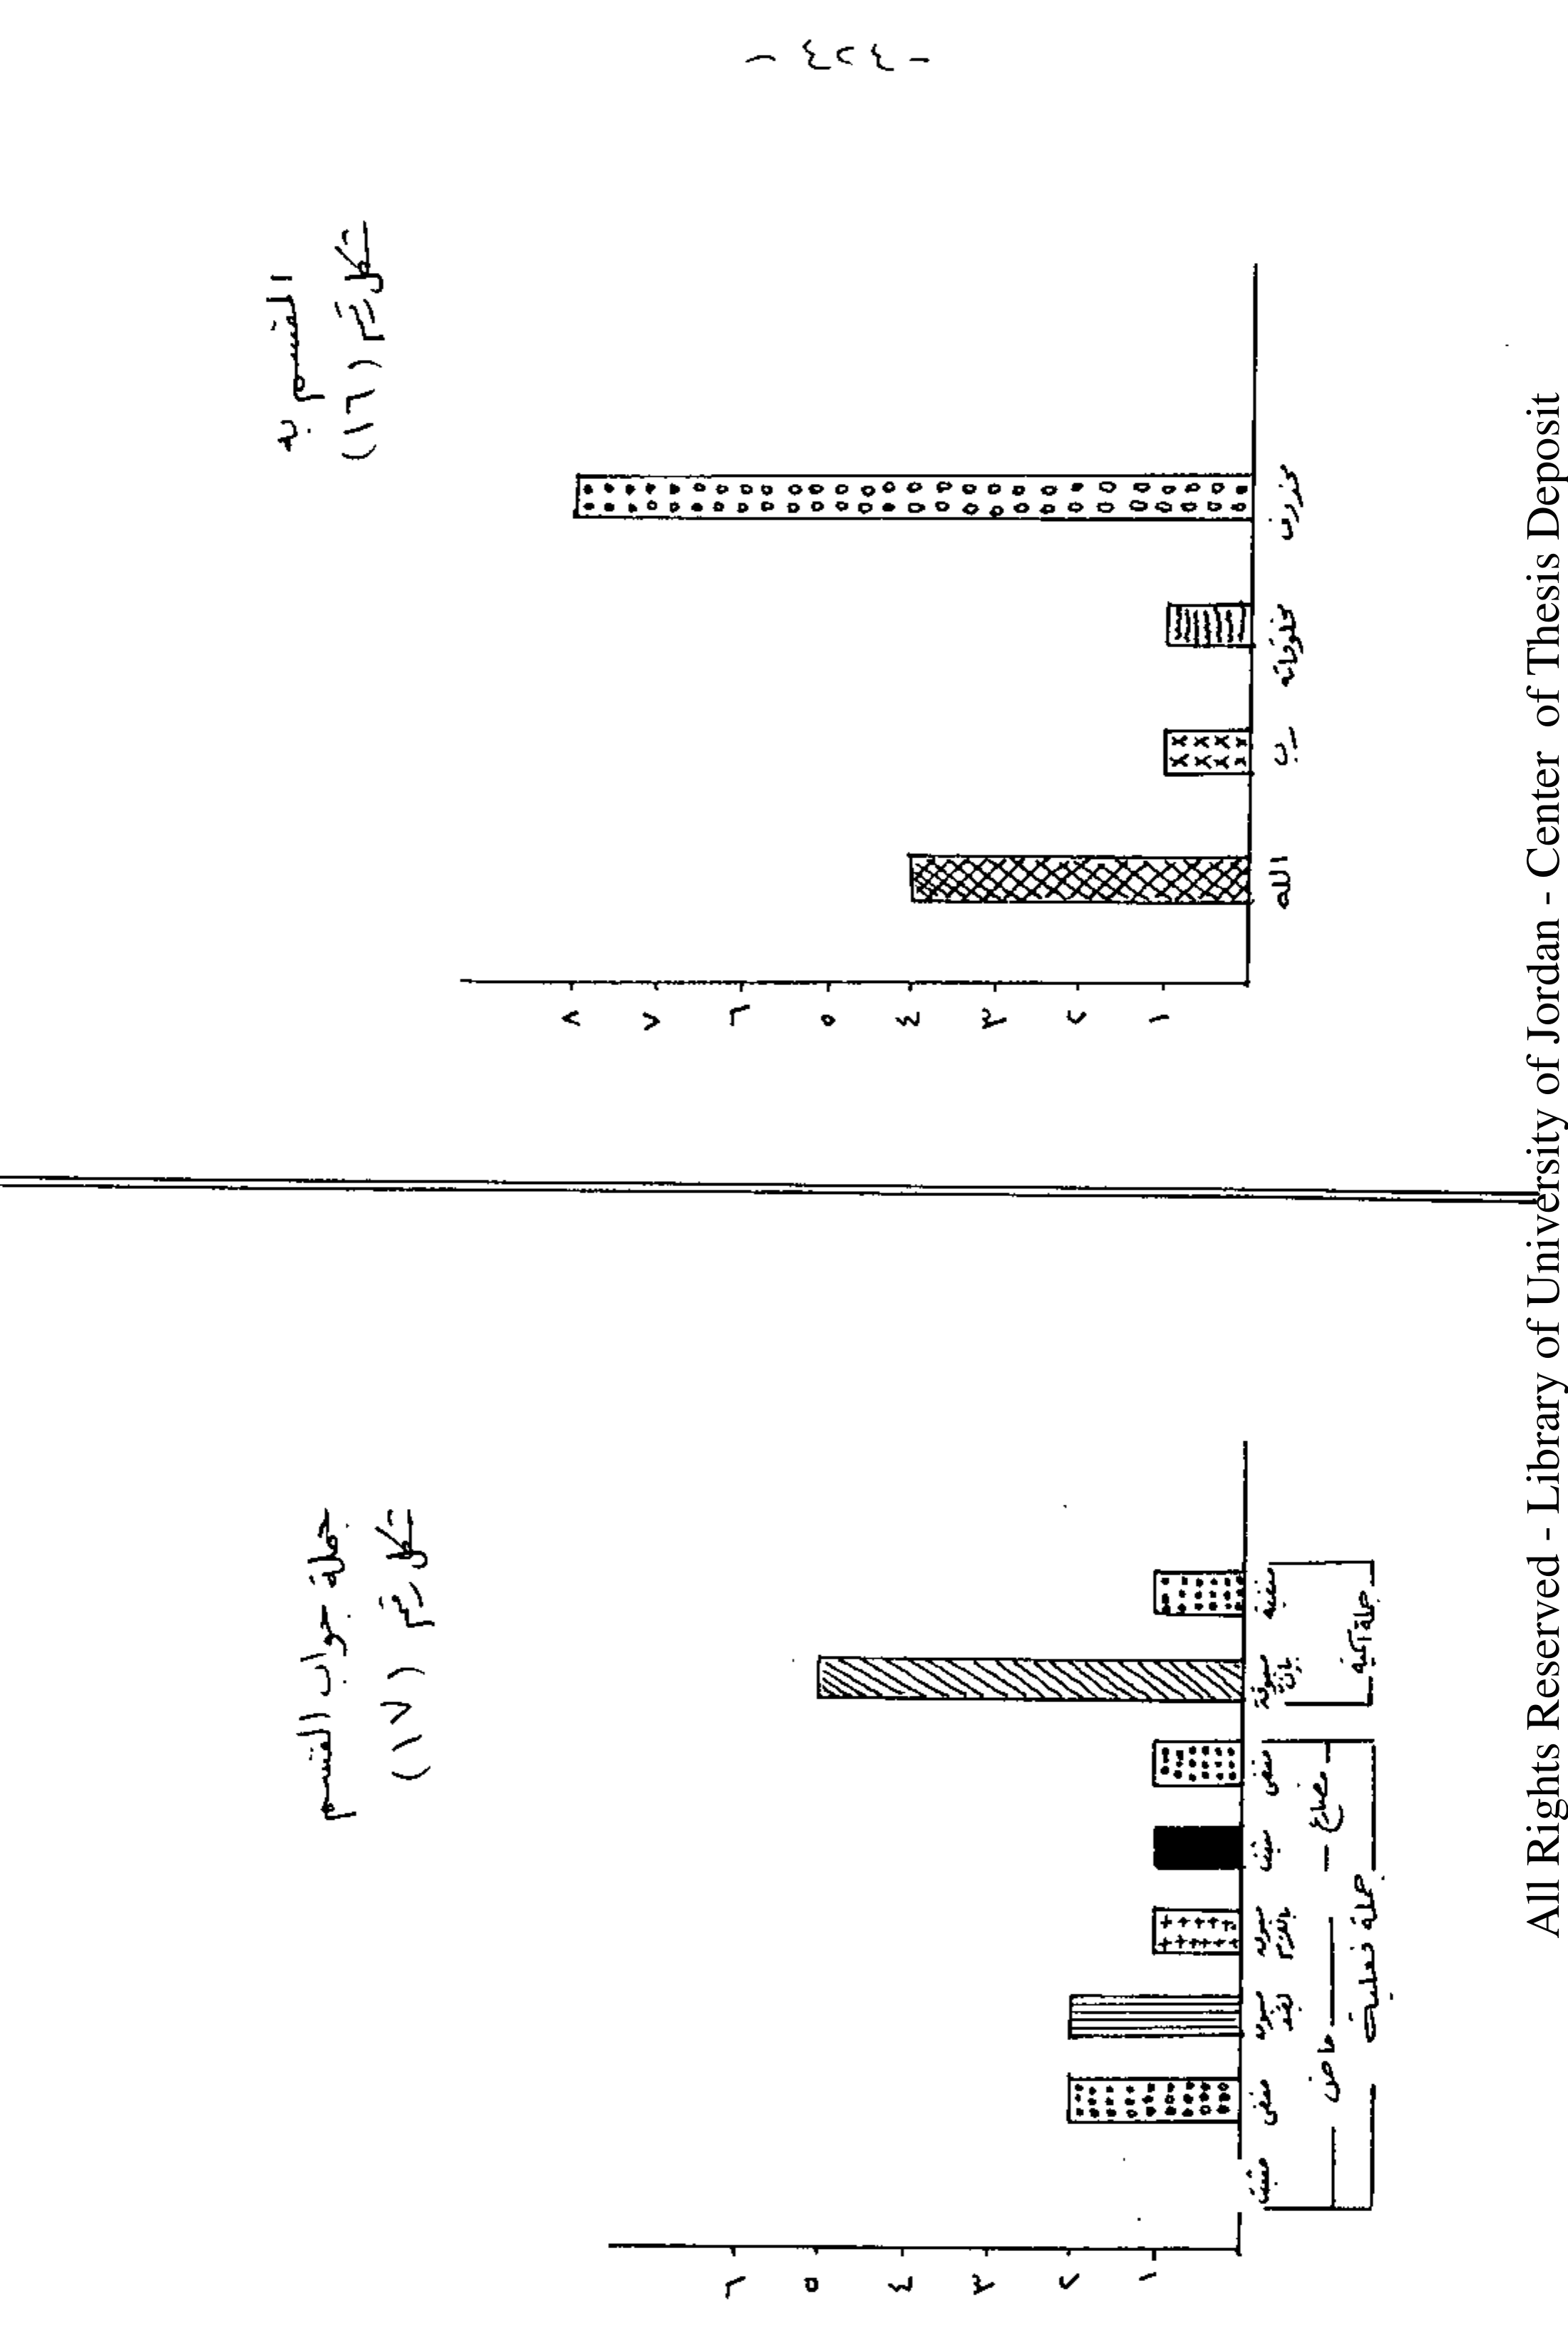 - ٤٢٤ -
المقسم به
شكل رقم (١٦)
٨
٧
٦
٥
٤
٣
٢
١
الله
رب
مخلوقاته
محذوف
جملة جواب القسم
شكل رقم (١٧)
٦
٥
٤
٣
٢
١
مثبت
منفي
مسبوق بقد
مسبوق باللام
مثبت
منفي
مسبوقة بإنّ
منفية
ماض
مضارع
جملة فعلية
جملة اسمية
All Rights Reserved - Library of University of Jordan - Center of Thesis Deposit